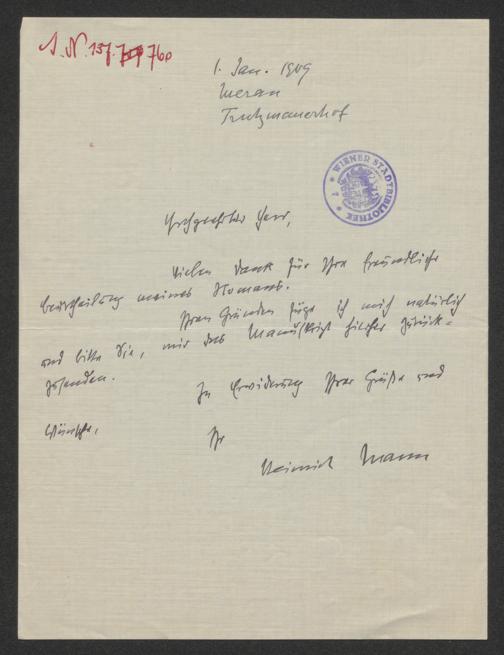 I. N. 137.760
1. Jan. 1909
Meran
Hochgeehrter Herr,
vielen Dank für Ihre freundliche
Beurtheilung meines Romans.
Ihren Gründen füge ich mich natürlich
und bitte Sie, mir das Manuskript hierher zurück-
zusenden.
In Erwiderung Ihrer Grüße und
Wünsche,
Ihr
Heinrich Mann
WIENER STADTBIBLIOTHEK